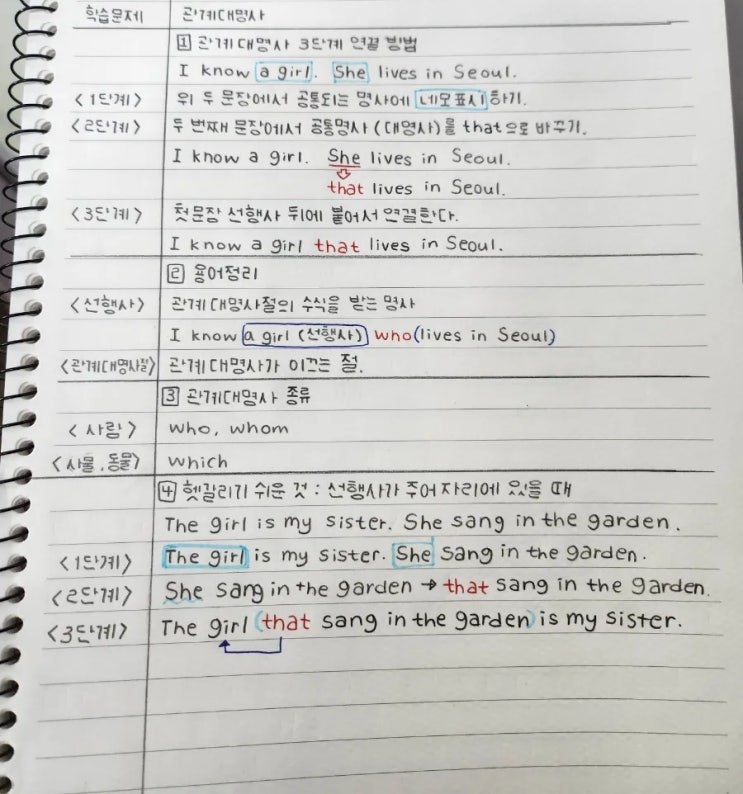 학습문제 관계대명사
1 관계대명사 3단계 연결 방법
I know a girl. She lives in Seoul.
<1단계> 위 두 문장에서 공통되는 명사에 네모표시하기.
<2단계> 두 번째 문장에서 공통명사 (대명사)를 that으로 바꾸기.
I know a girl. She lives in Seoul.
that lives in Seoul.
<3단계> 첫문장 선행사 뒤에 붙어서 연결한다.
I know a girl that lives in Seoul.
2 용어정리
<선행사> 관계대명사절의 수식을 받는 명사
I know a girl (선행사) who (lives in Seoul)
<관계대명사절> 관계대명사가 이끄는 절.
3 관계대명사 종류
<사람> who, whom
<사물, 동물> which
4 헷갈리기 쉬운 것 : 선행사가 주어 자리에 있을 때
The girl is my sister. She sang in the garden.
<1단계> The girl is my sister. She sang in the garden.
<2단계> She sang in the garden → that sang in the garden.
<3단계> The girl (that sang in the garden) is my sister.